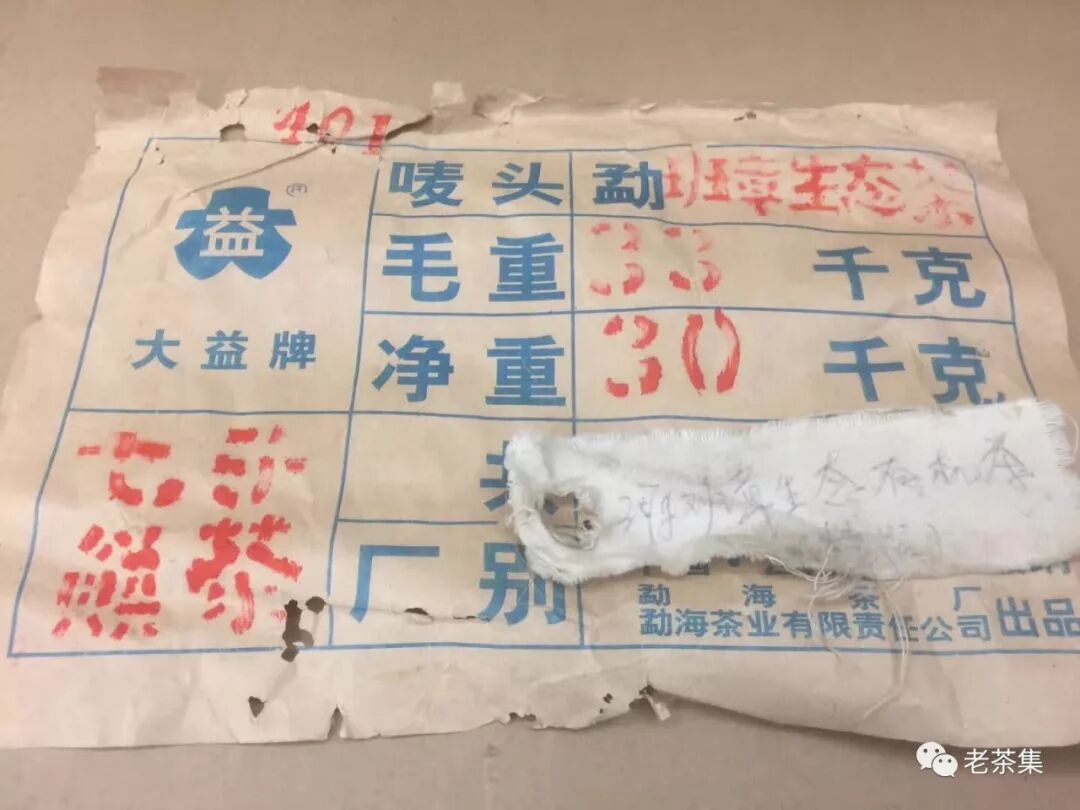 401
益
®
大益牌
唛头 勐班章生态茶
毛重 33 千克
净重 30 千克
七子
饼茶
厂别
班章生态有机茶
勐海茶厂
勐海茶业有限责任公司 出品
老茶集